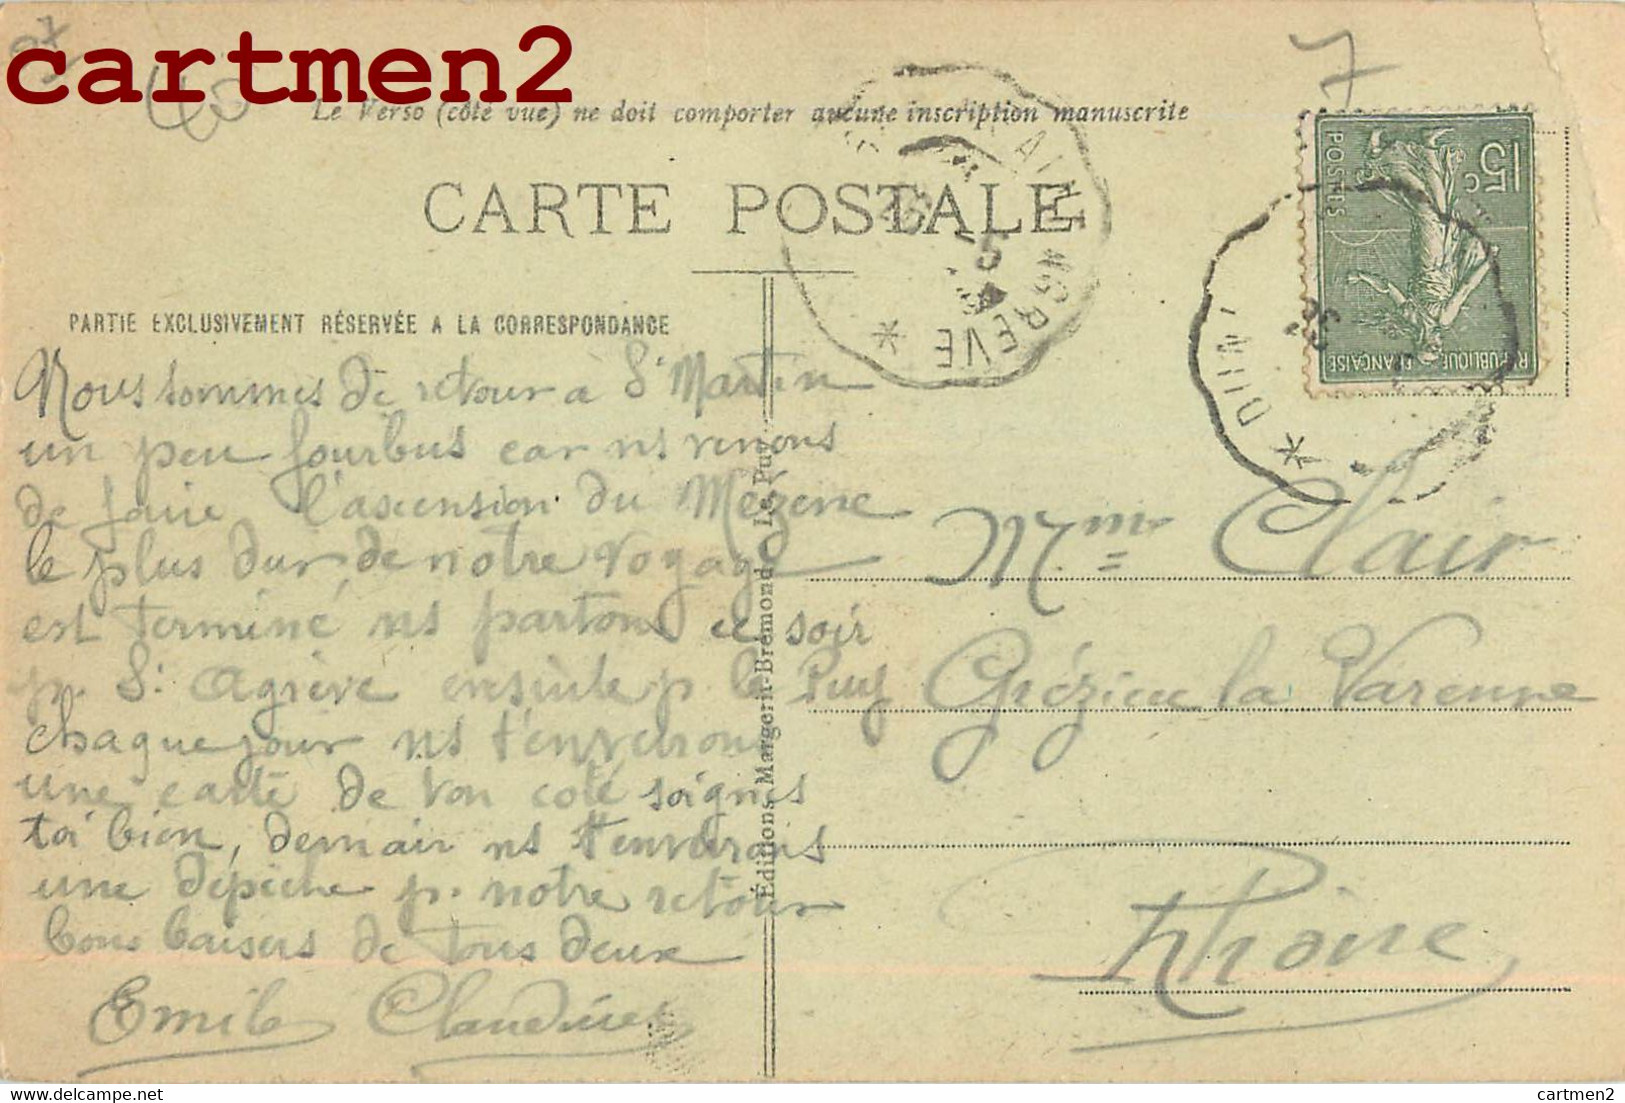 cartmen2
Le Verso (côté vue) ne doit comporter aucune inscription manuscrite
CARTE POSTALE
PARTIE EXCLUSIVEMENT RÉSERVÉE A LA CORRESPONDANCE
15c
POSTES
REPUBLIQUE FRANÇAISE
Nous sommes de retour à St Martin
un peu fourbus car ns venons
de faire l'ascension du Mézenc
le plus dur de notre voyage
est terminé ns partons ce soir
p. St Agrève ensuite p le Puy
chaque jour ns t'enverrons
une carte de ton coté soignes
toi bien, demain ns t'enverrons
une dépêche p. notre retour
bons baisers de tous deux
Emile Claudine
Éditions Margerit-Brémond Le Puy
Mme Clair
Grézieu la Varenne
Rhône
7
delcampe.net
cartmen2